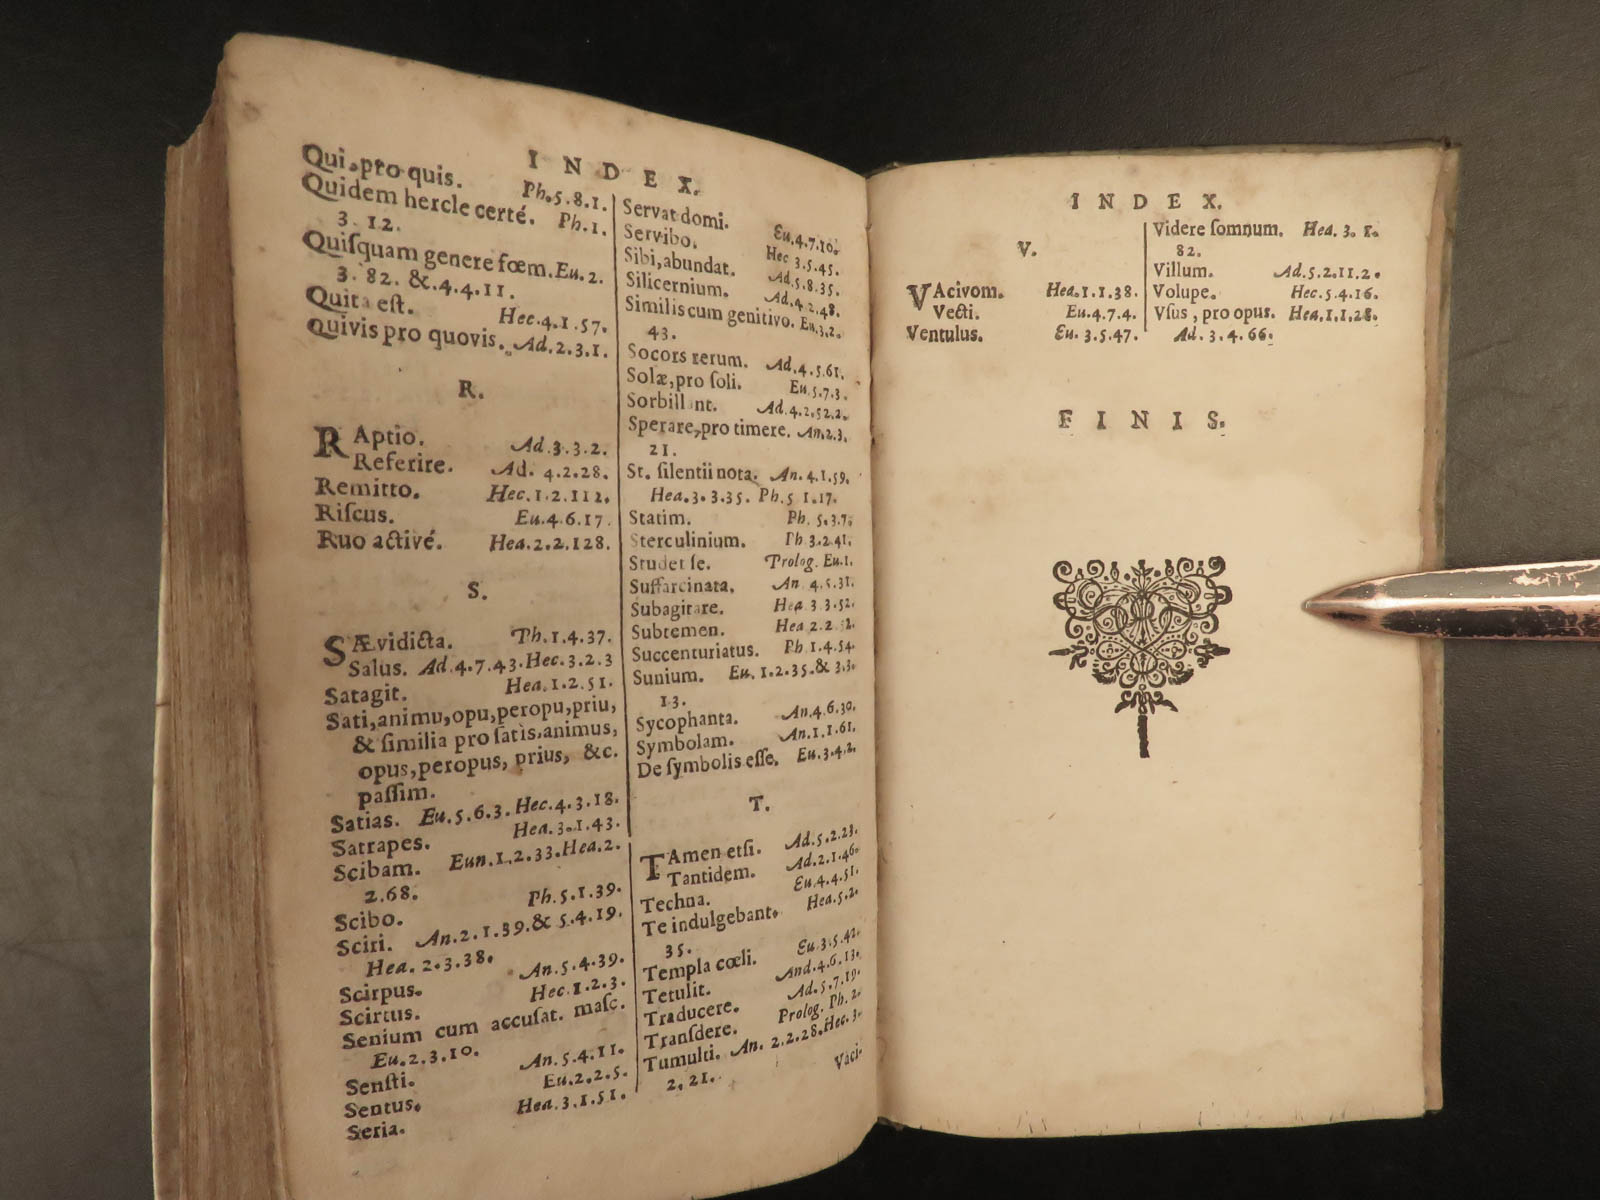 INDEX.
Qui, pro quis. Ph.5.8.1.
Quidem hercle certé. Ph.1.
3.12.
Quiſquam genere fœm. Eu.2.
3.82. &.4.4.11.
Quita eſt. Hec.4.1.57.
Quivis pro quovis. Ad.2.3.1.
R.
RAptio. Ad.3.3.2.
Referire. Ad. 4.2.28.
Remitto. Hec.1.2.112.
Riſcus. Eu.4.6.17.
Ruo activé. Hea.2.2.128.
S.
SÆvidicta. Ph.1.4.37.
Salus. Ad.4.7.43. Hec.3.2.3
Satagit. Hea.1.2.51.
Sati, animu, opu, peropu, priu,
& ſimilia pro ſatis, animus,
opus, peropus, prius, &c.
paſſim.
Satias. Eu.5.6.3. Hec.4.3.18.
Satrapes. Hea.3.1.43.
Scibam. Eun.1.2.33. Hea.2.
2.68.
Scibo. Ph.5.1.39.
Sciri. An.2.1.39. & 5.4.19.
Hea. 2.3.38.
Scirpus. An.5.4.39.
Scirtus. Hec.1.2.3.
Senium cum accuſat. maſc.
Eu.2.3.10.
Senſti. An.5.4.11.
Sentus. Eu.2.2.5.
Seria. Hea.3.1.51.
Servat domi. Eu.4.7.10.
Servibo. Hec 3.5.45.
Sibi, abundat. Ad.5.8.35.
Silicernium. Ad.4.2.48.
Similis cum genitivo. Eu.3.2.
43.
Socors rerum. Ad.4.5.61.
Solæ, pro ſoli. Eu.5.7.3.
Sorbill nt. Ad.4.2.52.2.
Sperare, pro timere. An.2.3.
21.
St. ſilentii nota. An.4.1.59.
Hea.3.3.35. Ph.5 1.17.
Statim. Ph. 5.3.7.
Sterculinium. Ph 3.2.41.
Studet ſe. Prolog. Eu.1.
Suffarcinata. An. 4.5.31.
Subagitare. Hea 3 3.52.
Subtemen. Hea 2.2
Succenturiatus. Ph.1.4.54.
Sunium. Eu. 1.2.35. & 3.3.
13.
Sycophanta. An.4.6.30.
Symbolam. An.1.1.61.
De ſymbolis eſſe. Eu.3.4.2.
T.
TAmen etſi. Ad.5.2.23.
Tantidem. Ad.2.1.46.
Techna. Eu.4.4.51.
Te indulgebant. Hea.5.2.
35.
Templa cœli. Eu.3.5.42.
Tetulit. And.4.6.13.
Traducere. Ad.5.7.19.
Tranſdere. Prolog. Ph.2.
Tumulti. An. 2.2.28. Hec.3.
2.21.
Vaci-
INDEX.
V.
VAcivom. Hea.1.1.38.
Vecti. Eu.4.7.4.
Ventulus. Eu. 3.5.47.
Videre ſomnum. Hea. 3. 1.
82.
Villum. Ad.5.2.11.2.
Volupe. Hec.5.4.16.
Vſus, pro opus. Hea.1.1.28.
Ad.3.4.66.
FINIS.